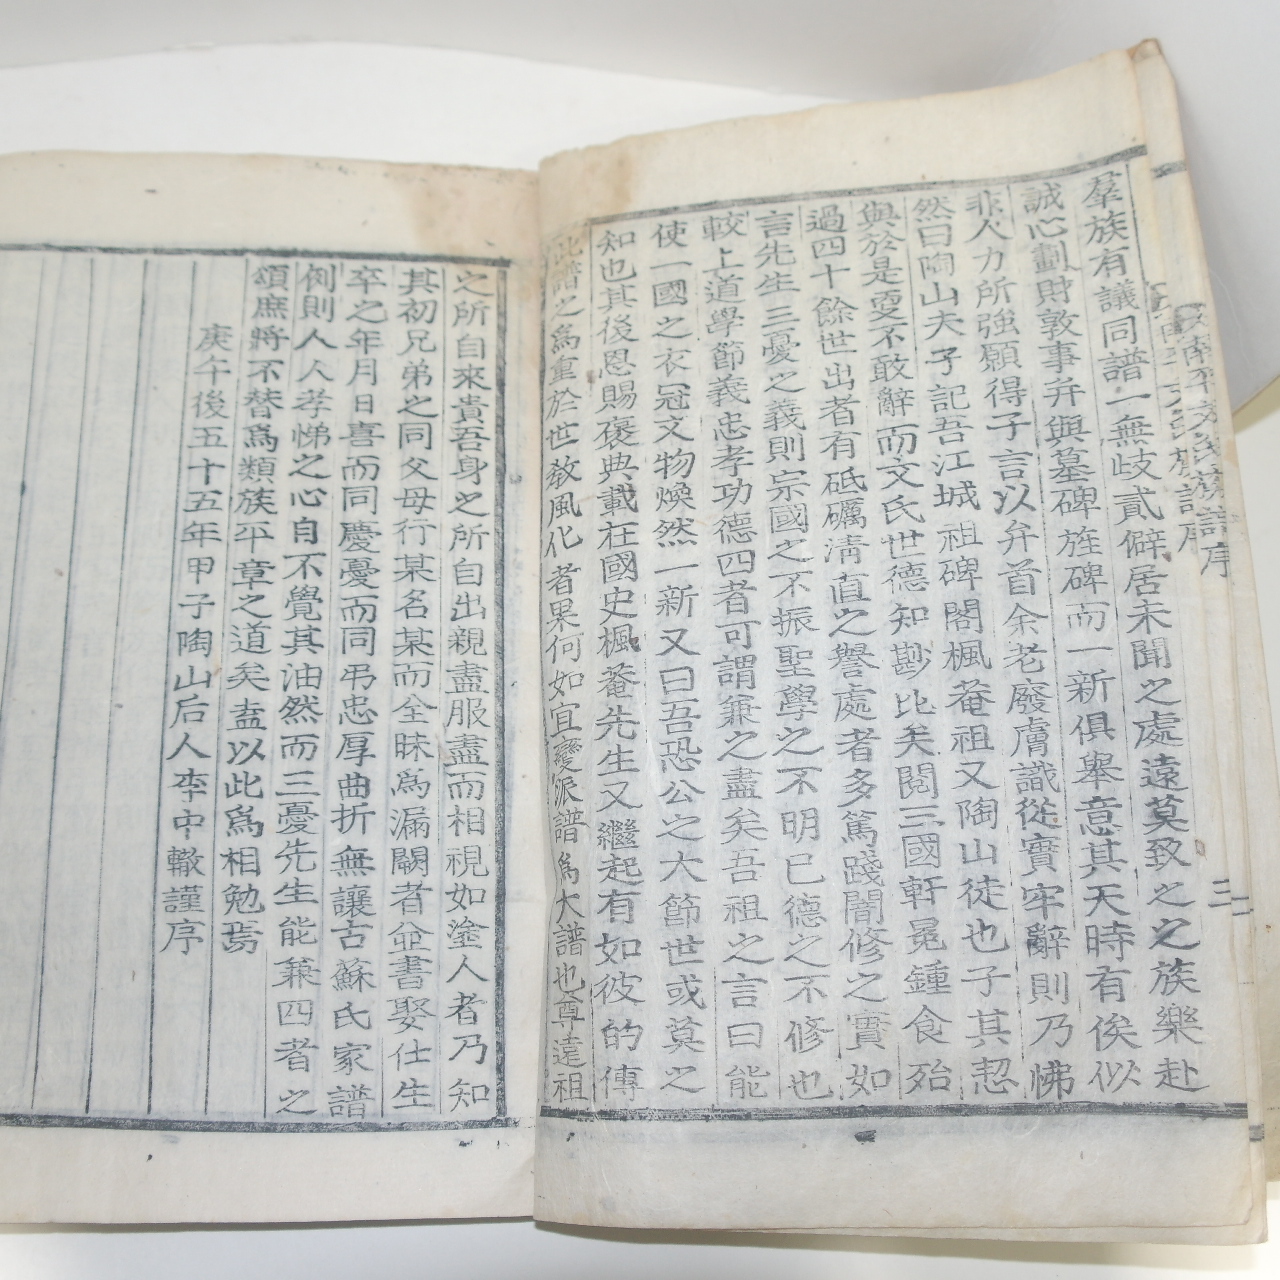 南平文氏族譜序
三
羣族有議同譜一無歧貳僻居未聞之處遠莫致之之族樂赴
誠心劃財敦事弁與墓碑旌碑而一新俱舉意其天時有俟似
非人力所強願得子言以弁首余老廢膚識從實牢辭則乃怫
然曰陶山夫子記吾江城祖碑閣楓菴祖又陶山徒也子其恝
與於是耎不敢辭而文氏世德知尠比矣閱三國軒冕鍾食殆
過四十餘世出者有砥礪淸直之譽處者多篤踐闇修之實如
言先生三憂之義則宗國之不振聖學之不明已德之不修也
較上道學節義忠孝功德四者可謂兼之盡矣吾祖之言曰能
使一國之衣冠文物煥然一新又曰吾恐公之大節世或莫之
知也其後恩賜褒典載在國史楓菴先生又繼起有如彼的傳
此譜之爲重於世敎風化者果何如宜變派譜爲大譜也尊遠祖
之所自來貴吾身之所自出親盡服盡而相視如塗人者乃知
其初兄弟之同父母行某名某而全昧爲漏闕者並書娶仕生
卒之年月日喜而同慶憂而同弔忠厚曲折無讓古蘇氏家譜
例則人人孝悌之心自不覺其油然而三憂先生能兼四者之
頌庶將不替爲類族平章之道矣盍以此爲相勉焉
庚午後五十五年甲子陶山后人李中轍謹序